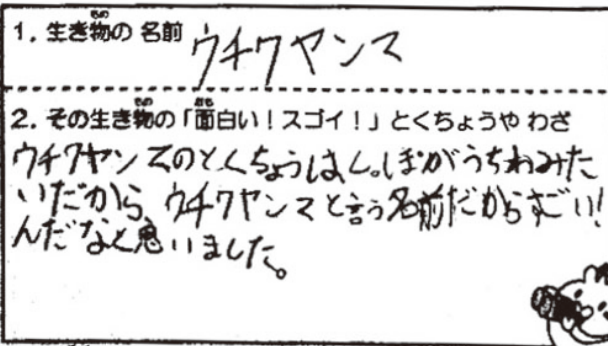 1. 生き物の 名前 ウチワヤンマ
2. その生き物の「面白い！スゴイ！」とくちょうや わざ
ウチワヤンマのとくちょうはしっぽがうちわみた
いだから、ウチワヤンマと言う名前だからすごい！
んだなと思いました。